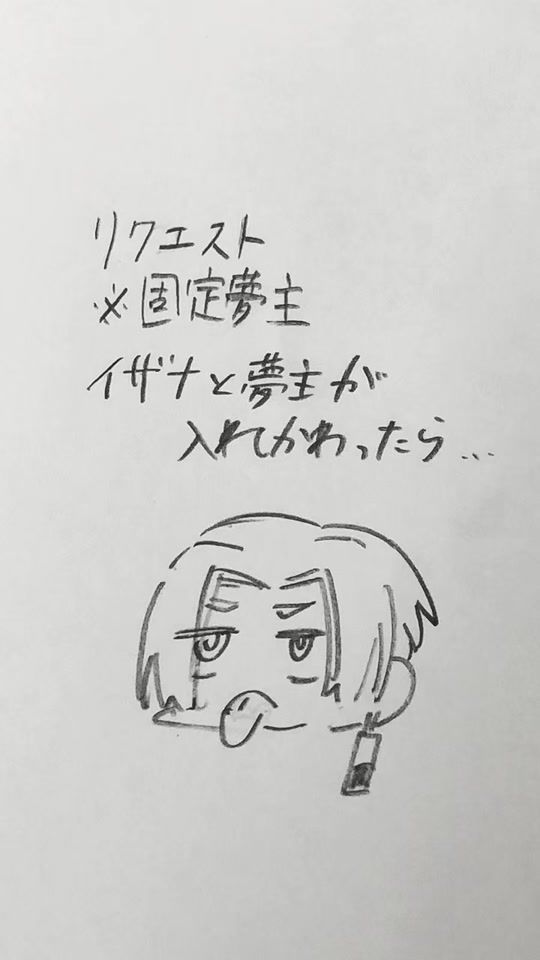 リクエスト
※固定夢主
イザナと夢主が
入れかわったら...